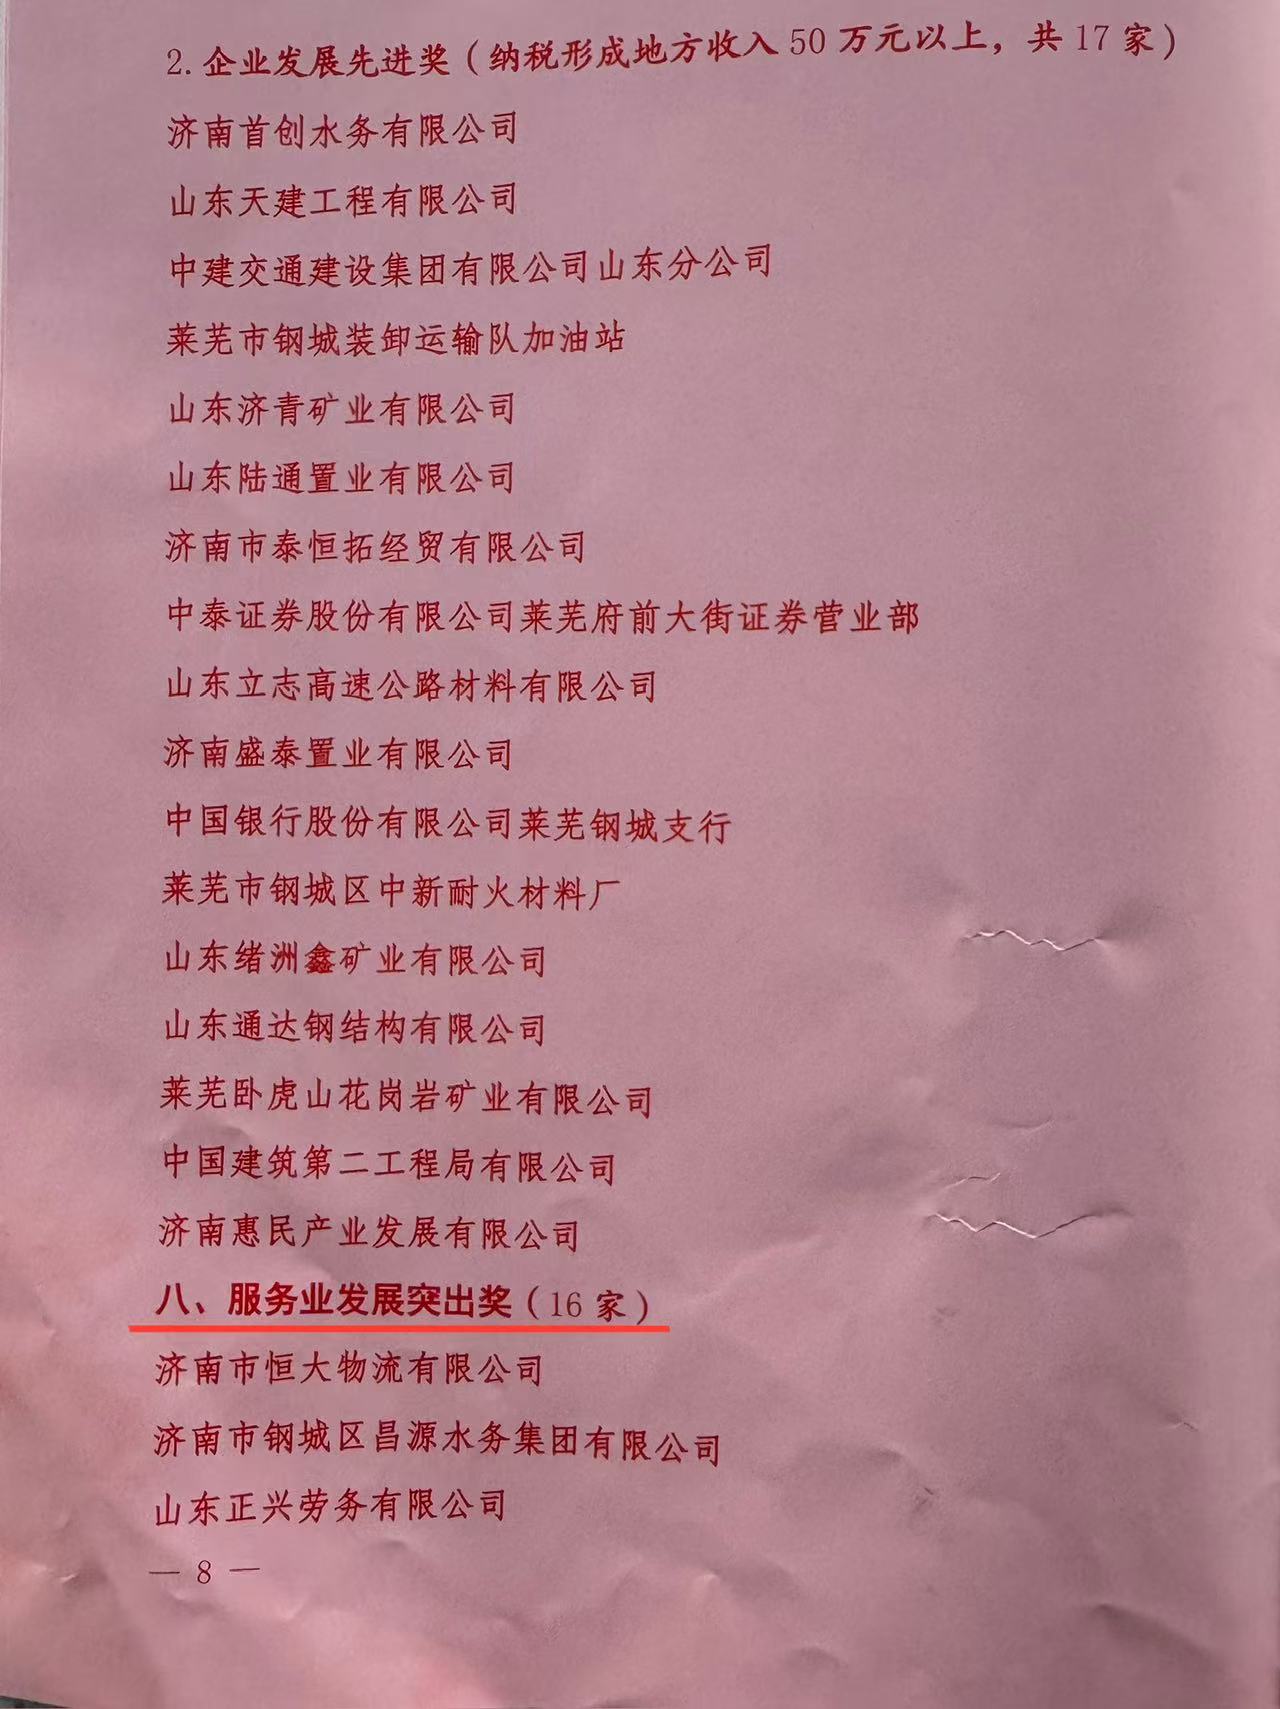 2. 企业发展先进奖（纳税形成地方收入 50 万元以上，共 17 家）
济南首创水务有限公司
山东天建工程有限公司
中建交通建设集团有限公司山东分公司
莱芜市钢城装卸运输队加油站
山东济青矿业有限公司
山东陆通置业有限公司
济南市泰恒拓经贸有限公司
中泰证券股份有限公司莱芜府前大街证券营业部
山东立志高速公路材料有限公司
济南盛泰置业有限公司
中国银行股份有限公司莱芜钢城支行
莱芜市钢城区中新耐火材料厂
山东绪洲鑫矿业有限公司
山东通达钢结构有限公司
莱芜卧虎山花岗岩矿业有限公司
中国建筑第二工程局有限公司
济南惠民产业发展有限公司
八、服务业发展突出奖（16 家）
济南市恒大物流有限公司
济南市钢城区昌源水务集团有限公司
山东正兴劳务有限公司
— 8 —